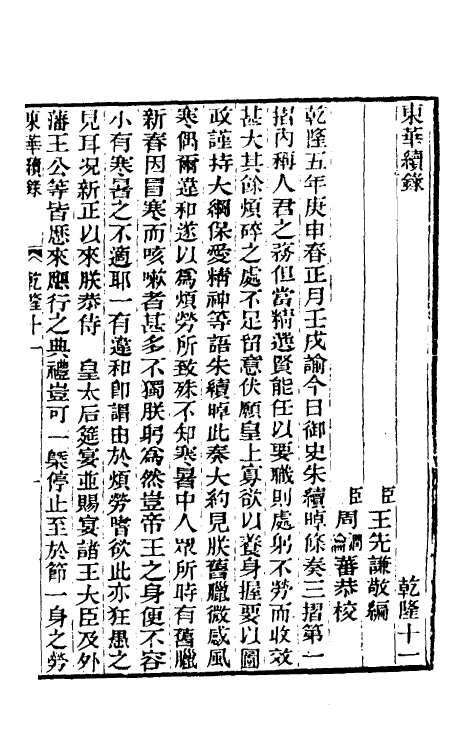 東華續錄　　乾隆十一
臣王先謙敬編
臣周潤蕃周瀹蕃恭校
乾隆五年庚申春正月壬戌諭今日御史朱續晫條奏三摺第一
摺內稱人君之務但當精選賢能任以要職則處躬不勞而收效
甚大其餘煩碎之處不足留意伏願皇上寡欲以養身握要以圖
政謹持大綱保愛精神等語朱續晫此奏大約見朕舊臘微感風
寒偶爾違和遂以為煩勞所致殊不知寒暑中人眾所時有舊臘
新春因冒寒而咳嗽者甚多不獨朕躬為然豈帝王之身便不容
小有寒暑之不適耶一有違和即謂由於煩勞嗜欲此亦狂愚之
見耳况新正以來朕恭侍　皇太后筵宴並賜宴諸王大臣及外
藩王公等皆歷來應行之典禮豈可一槩停止至於節一身之勞
東華續錄　乾隆十一　一